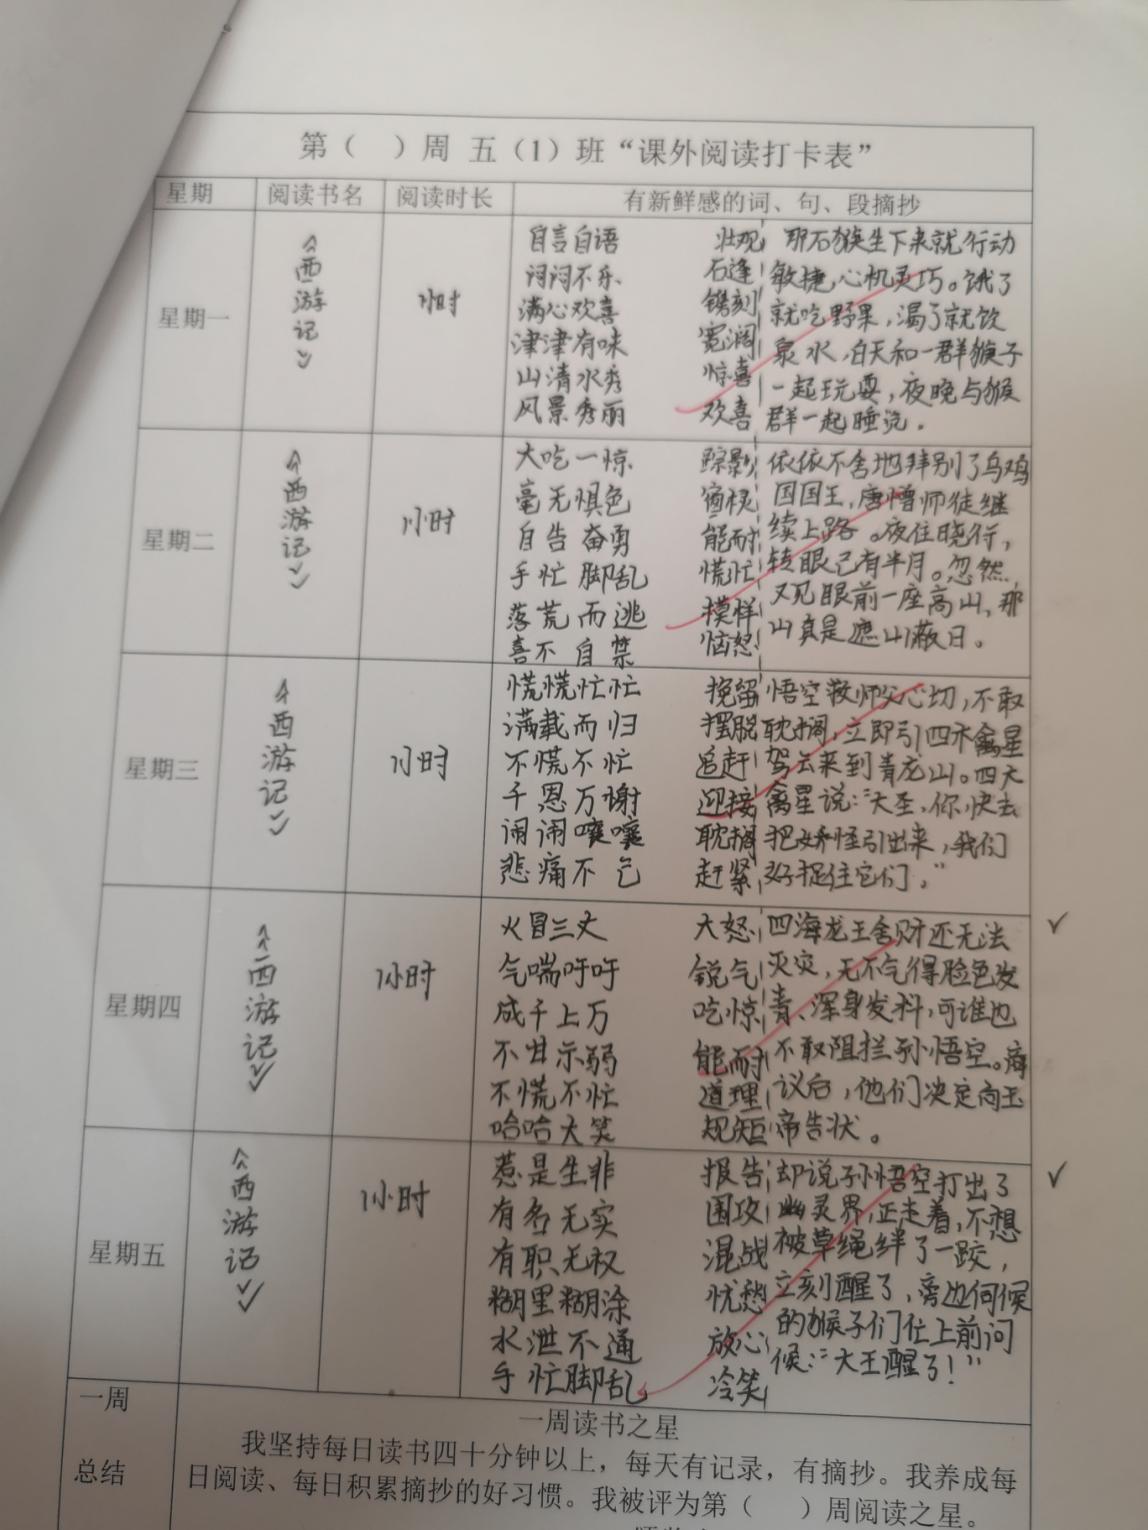 第（ ）周 五（1）班“课外阅读打卡表”
星期 阅读书名 阅读时长 有新鲜感的词、句、段摘抄
星期一
《西游记》
1小时
自言自语 壮观
闷闷不乐
满心欢喜 镌刻
津津有味 宽阔
山清水秀 惊喜
风景秀丽 欢喜
那石猴生下来就行动
敏捷，心机灵巧。饿了
就吃野果，渴了就饮
泉水，白天和一群猴子
一起玩耍，夜晚与猴
群一起睡觉。
星期二
《西游记》
1小时
大吃一惊 踪影
毫无惧色
自告奋勇 能耐
手忙脚乱 慌忙
落荒而逃 摸样
喜不自禁 恼怒
依依不舍地拜别了乌鸡
国国王，唐僧师徒继
续上路。夜住晓行，
转眼已有半月。忽然，
又见眼前一座高山，那
山真是遮山蔽日。
星期三
《西游记》
1小时
慌慌忙忙 挽留
满载而归 摆脱
不慌不忙 追赶
千恩万谢 迎接
闹闹嚷嚷 耽搁
悲痛不已 赶紧
悟空救师父心切，不敢
耽搁，立即引四木禽星
驾云来到青龙山。四大
禽星说：“大圣，你快去
把妖怪引出来，我们
好捉住它们。”
星期四
《西游记》
1小时
火冒三丈 大怒
气喘吁吁 锐气
成千上万 吃惊
不甘示弱 能耐
不慌不忙 道理
哈哈大笑 规矩
四海龙王舍财还无法
灭灾，无不气得脸色发
青、浑身发抖，可谁也
不敢阻拦孙悟空。商
议后，他们决定向玉
帝告状。
星期五
《西游记》
1小时
惹是生非 报告
有名无实 围攻
有职无权 混战
糊里糊涂 忧愁
水泄不通 放心
手忙脚乱 冷笑
却说孙悟空打出了
幽灵界，正走着，不想
被草绳绊了一跤，
立刻醒了，旁边伺候
的猴子们忙上前问
候：“大王醒了！”
一周
总结
一周读书之星
我坚持每日读书四十分钟以上，每天有记录，有摘抄。我养成每
日阅读、每日积累摘抄的好习惯。我被评为第（ ）周阅读之星。